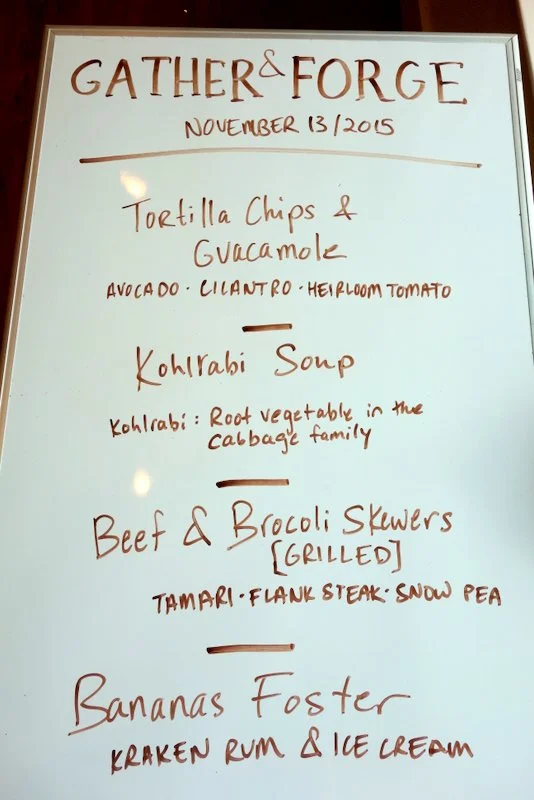 GATHER & FORGE
NOVEMBER 13/2015
Tortilla Chips &
Guacamole
AVOCADO · CILANTRO · HEIRLOOM TOMATO
Kohlrabi Soup
Kohlrabi : Root vegetable in the
cabbage family
Beef & Brocoli Skewers
[GRILLED]
TAMARI · FLANK STEAK · SNOW PEA
Bananas Foster
KRAKEN RUM & ICE CREAM